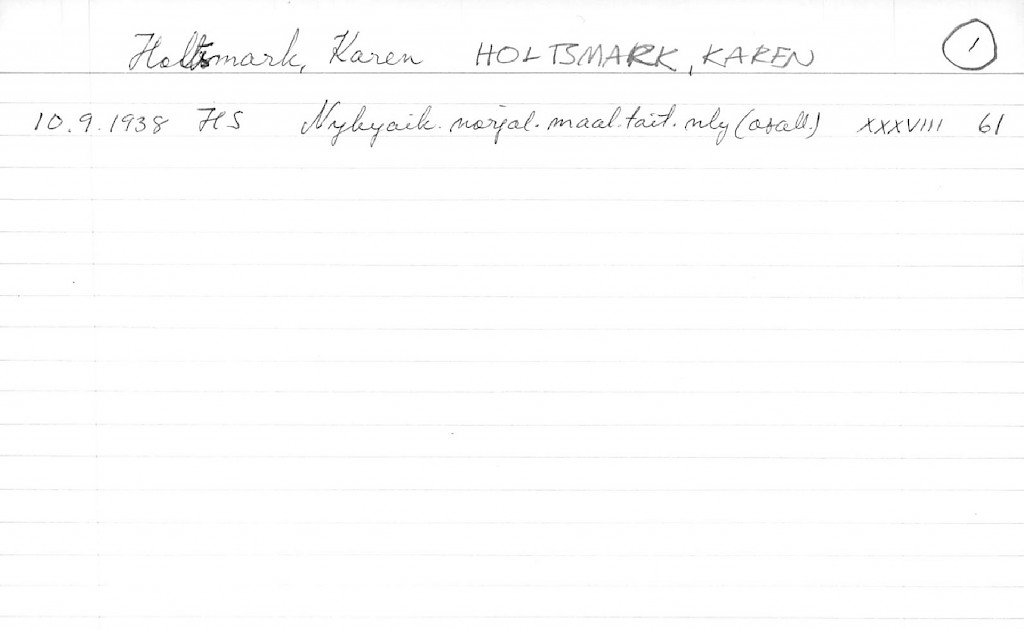 Holtsmark, Karen HOLTSMARK, KAREN 1
10.9.1938 HS Nykyaik. norjal. maal.tait. nly (osall.) XXXVIII 61